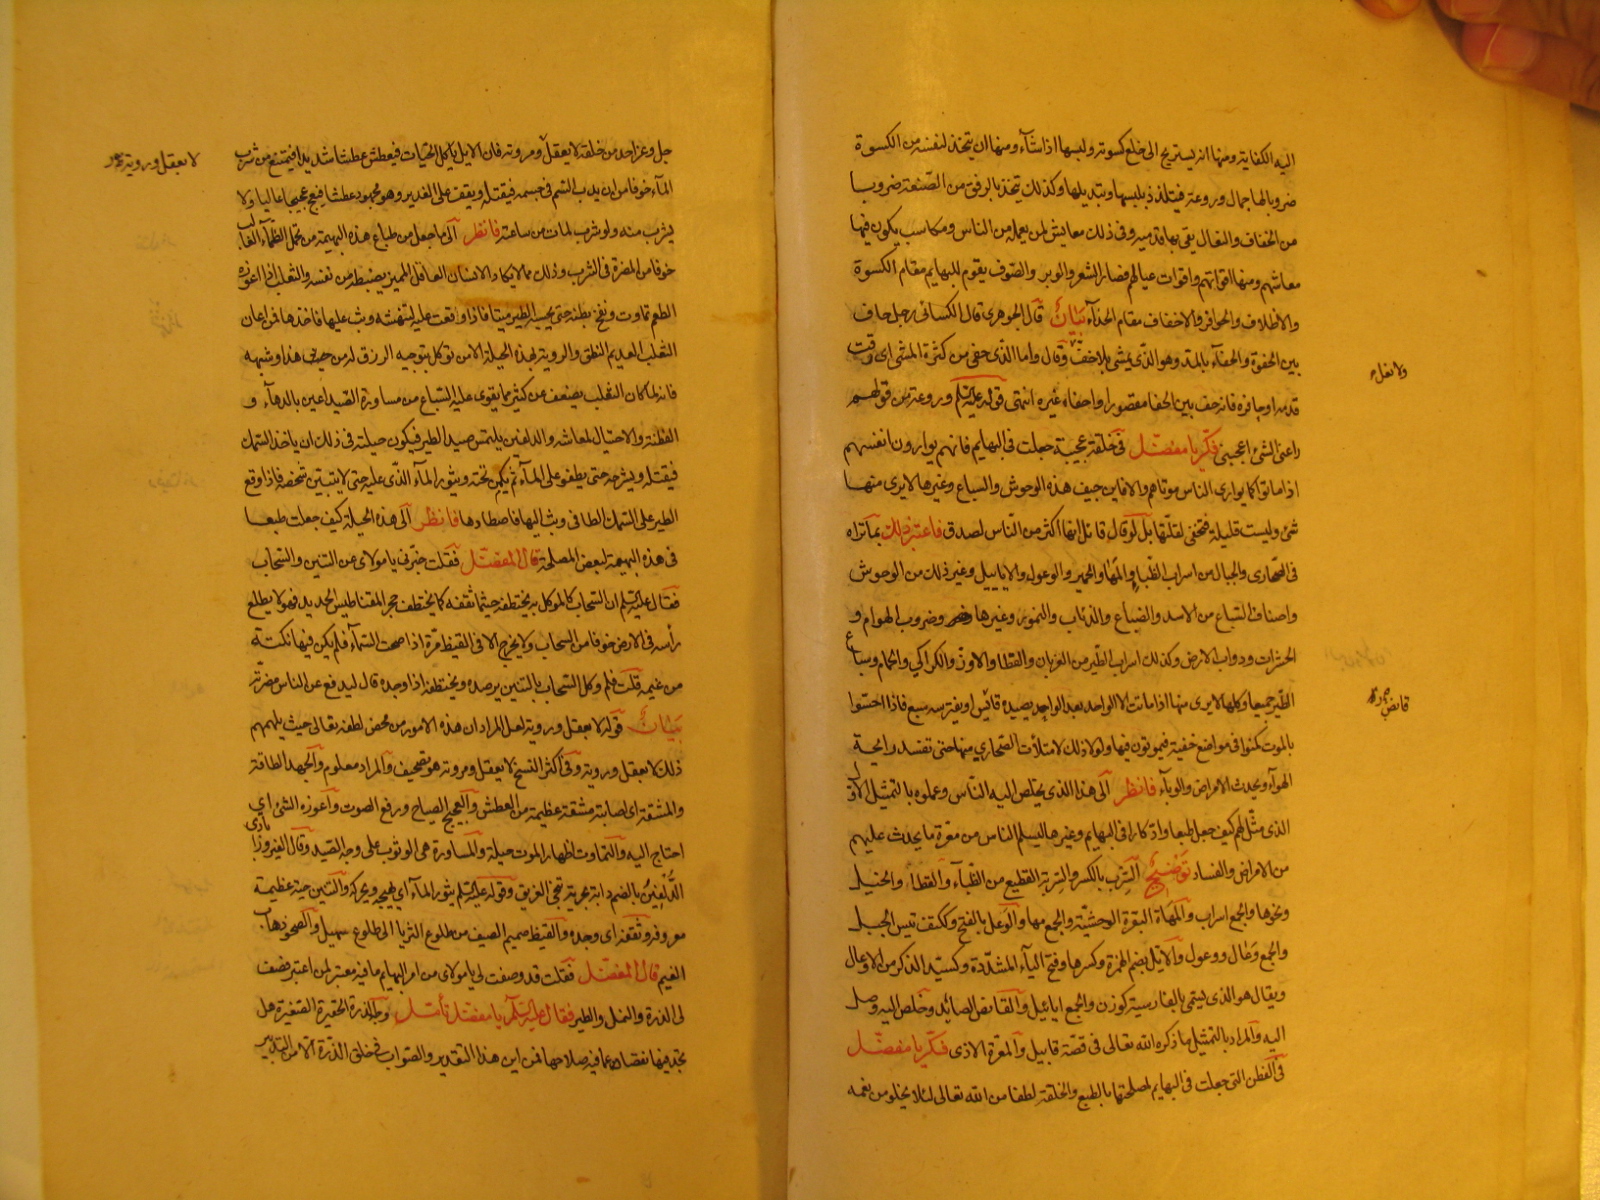 اليه الكفاية ومنها انه يستريح الى خلع كسوته ولبسها اذا شآء ومنها ان يتخذ لنفسه من الكسوة
ضروبا لها جمال وروعة فيتلذذ بلبسها وتبديلها وكذلك يتخذ بالرفق من الصنعة ضروبا
من الخفاف والنعال يقى بها قدميه وفى ذلك معايش لمن يعمله من الناس ومكاسب يكون فيها
معاشهم ومنها اقواتهم واقوات عيالهم فصار الشعر والوبر والصوف يقوم للبهايم مقام الكسوة
والاظلاف والحوافر والاخفاف مقام الحذآء بيان قال الجوهرى قال الكسائى رجل حاف
بين الحفوة والحفآء بالمد وهو الذى يمشى بلا خف وقال واما الذى حفى من كثرة المشى اى رقت
قدمه او حافره فانه حف بين الحفا مقصور واحفاه غيره انتهى قوله عليه السلم وروعة من قولهم
راعنى الشئ اعجبنى فكر يا مفضل فى خلقة عجيبة جعلت فى البهايم فانهم يوارون انفسهم
اذا ماتوا كما يوارى الناس موتاهم والا فاين جيف هذه الوحوش والسباع وغيرها لا يرى منها
شئ وليست قليلة فتخفى لقلتها بل لو قال قائل انها اكثر من الناس لصدق فاعتبر ذلك بما تراه
فى الصحارى والجبال من اسراب الظبآء والمها والحمير والوعول والاياييل وغير ذلك من الوحوش
واصناف السباع من الاسد والضباع والذئاب والنمور وغيرها وضروب الهوام و
الحشرات ودواب الارض وكذلك اسراب الطير من الغربان والقطا والاوز والكراكى والحمام وسباع
الطير جميعا وكلها لا يرى منها اذا ماتت الا الواحد بعد الواحد يصيده قانص او يفترسه سبع فاذا احسوا
بالموت كمنوا فى مواضع خفية فيموتون فيها ولولا ذلك لامتلأت الصحارى منها حتى تفسد رايحة
الهوآء ويحدث الامراض والوبآء فانظر الى هذا الذى يخلص اليه الناس وعملوه بالتمثيل الاول
الذى مثل لهم كيف جعل طبعا واذكارا فى البهايم وغيرها ليسلم الناس من معرة ما يحدث عليهم
من الامراض والفساد توضيح السرب بالكسر والسربة القطيع من الظبآء والقطا والخيل
ونحوها والجمع اسراب والمهاة البقرة الوحشية والجمع مها والوعل بالفتح وككتف تيس الجبل
والجمع وعال ووعول والايل بضم الهمزة وكسرها وفتح اليآء المشددة وكسيد الذكر من الاوعال
ويقال هو الذى يسمى بالفارسية كوزن والجمع اياييل والقانص الصائد وخلص اليه وصل
اليه والمراد بالتمثيل ما ذكره الله تعالى فى قصة قابيل والمعرة الاذى فكر يا مفضل
فى الفطن التى جعلت فى البهايم لمصلحتها بالطبع والخلقة لطفا من الله تعالى لئلا يخلو من نعمه
ولا نعل
قانص
جل وعز احد من خلقه لا بعقل ومروته فان الايل ياكل الحيات فيعطش عطشا شديدا فيمتنع من شرب
المآء خوفا من ان يدب السم فى جسمه فيقتله ويقف على الغدير وهو مجهود عطشا فيعج عجيجا عاليا ولا
يشرب منه ولو شرب لمات من ساعته فانظر الى ما جعل من طباع هذه البهيمة من تحمل الظمآء الغالب
خوفا من المضرة فى الشرب وذلك مما لا يكاد الانسان العاقل المميز يضبطه من نفسه والثعلب اذا اعوزه
الطعم تماوت ونفخ بطنه حتى يحسبه الطير ميتا فاذا وقعت عليه لتنهشه وثب عليها فاخذها فمن اعان
الثعلب العديم النطق والروية بهذه الحيلة الا من توكل بتوجيه الرزق له من هذا وشبهه
فانه لما كان الثعلب يضعف عن كثير مما يقوى عليه السباع من مساورة الصيد اعين بالدهآء و
الفطنة والاحتيال لمعاشه والدلفين يلتمس صيد الطير فيكون حيلته فى ذلك ان ياخذ السمك
فيقتله ويشرحه حتى يطفو على المآء ثم يكمن تحته ويثور المآء الذى عليه حتى لا يتبين شخصه فاذا وقع
الطير على السمك الطافى وثب اليها فاصطادها فانظر الى هذه الحيلة كيف جعلت طبعا
فى هذه البهيمة لبعض المصلحة قال المفضل فقلت خبرنى يا مولاى عن التنين والسحاب
فقال عليه السلم ان السحاب كالموكل به يختطفه حيثما ثقفه كما يختطف حجر المقناطيس الحديد فهو لا يطلع
رأسه فى الارض خوفا من السحاب ولا يخرج الا فى القيظ مرة اذا صحت السمآء فلم يكن فيها نكتة
من غيمة قلت فلم وكل السحاب بالتنين يرصده ويختطفه اذا وجده قال ليدفع عن الناس مضرته
بيان قوله لا بعقل وروية لعل المراد ان هذه الامور من محض لطفه تعالى حيث يلهمهم
ذلك لا بعقل وروية وفى اكثر النسخ لا بعقل ومروته هو تصحيف والمراد معلوم والجهد الطاقة
والمشقة اى اصابته مشقة عظيمة من العطش والعجيج الصياح ورفع الصوت واعوزه الشئ اى
احتاج اليه والتماوت اظهار الموت حيلة والمساورة هى الوثوب على وجه الصيد وقال الفيروزابادى
الدلفين بالضم دابة بحرية تنجى الغريق وقوله عليه السلم يثور المآء اى يهيجه ويحركه والتنين حية عظيمة
معروفه وثقفه اى وجده والقيظ صميم الصيف من طلوع الثريا الى طلوع سهيل والصحو ذهاب
الغيم قال المفضل فقلت قد وصفت لى يا مولاى من امر البهايم ما فيه معتبر لمن اعتبر فصف
لى الذرة والنمل والطير فقال عليه السلم يا مفضل تأمل وجه الذرة الحقيرة الصغيرة هل
تجد فيها نقصا عما فيه صلاحها فمن اين هذا التقدير والصواب فى خلق الذرة الا من التدبير
لا بعقل وروية